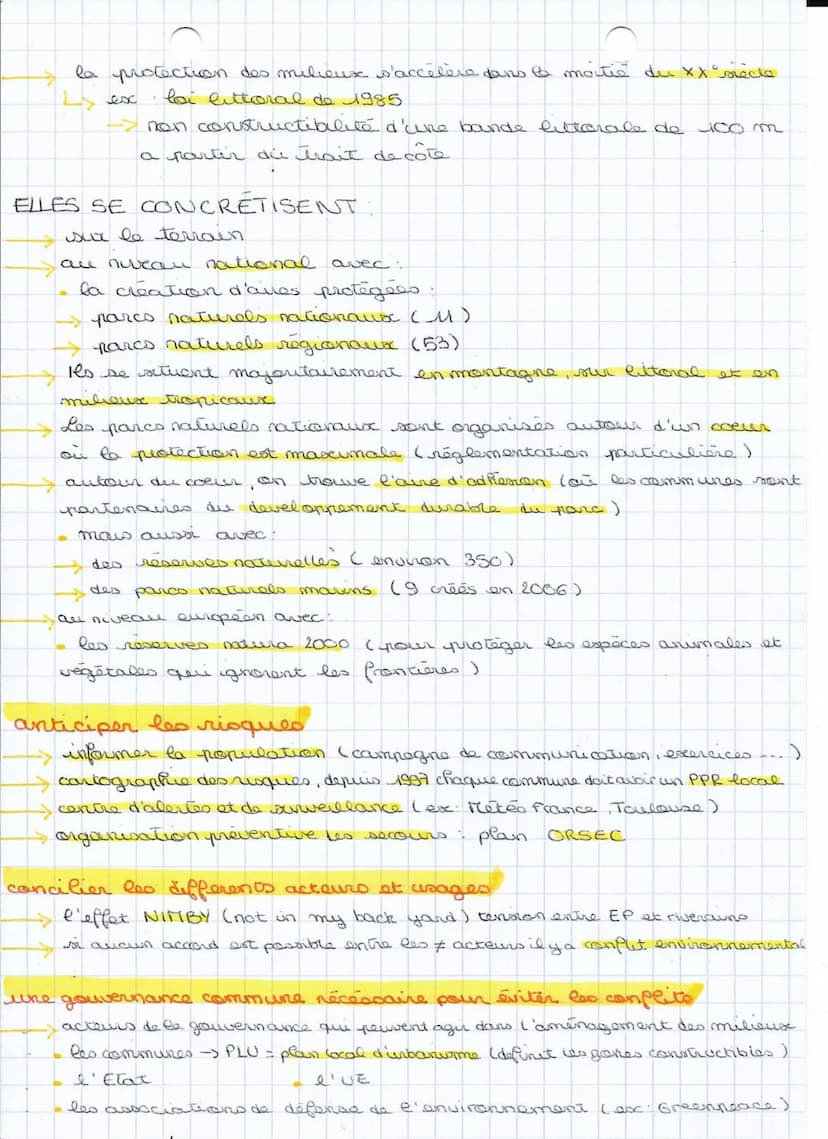 → la protection des milieux s'accélère dans la moitié du XXe siècle
↳ ex : loi littoral de 1985
→ non constructibilité d'une bande littorale de 100 m
a partir du trait de côte
ELLES SE CONCRÉTISENT :
→ sur le terrain
→ au niveau national avec :
• la création d'aires protégées :
→ parcs naturels nationaux (11)
→ parcs naturels régionaux (53)
→ Ils se situent majoritairement en montagne, sur littoral et en
milieux tropicaux
→ Les parcs naturels nationaux sont organisés autour d'un coeur
où la protection est maximale (réglementation particulière)
→ autour du coeur, on trouve l'aire d'adhésion (où les communes sont
partenaires du developpement durable du parc)
• mais aussi avec :
→ des réserves naturelles (environ 350)
→ des parcs naturels marins (9 créés en 2006)
→ au niveau européen avec :
• les réserves natura 2000 (pour protéger les espèces animales et
végétales qui ignorent les frontières)
anticiper les risques
→ informer la population (campagne de communication, exercices ...)
→ cartographie des risques, depuis 1997 chaque commune doit avoir un PPR local
→ centre d'alertes et de surveillance (ex : Météo France, Toulouse)
→ organisation préventive les secours : plan ORSEC
concilier les differents acteurs et usages
→ l'effet NIMBY (not in my back yard) tension entre EP et riverains
→ si aucun accord est possible entre les ≠ acteurs il y a conflit environnemental
une gouvernance commune nécéssaire pour éviter les conflits
→ acteurs de la gouvernance qui peuvent agir dans l'aménagement des milieux
• les communes → PLU = plan local d'urbanisme (définit les zones constructibles)
• l'Etat • l'UE
• les associations de défense de l'environnement (ex : Greenpeace)